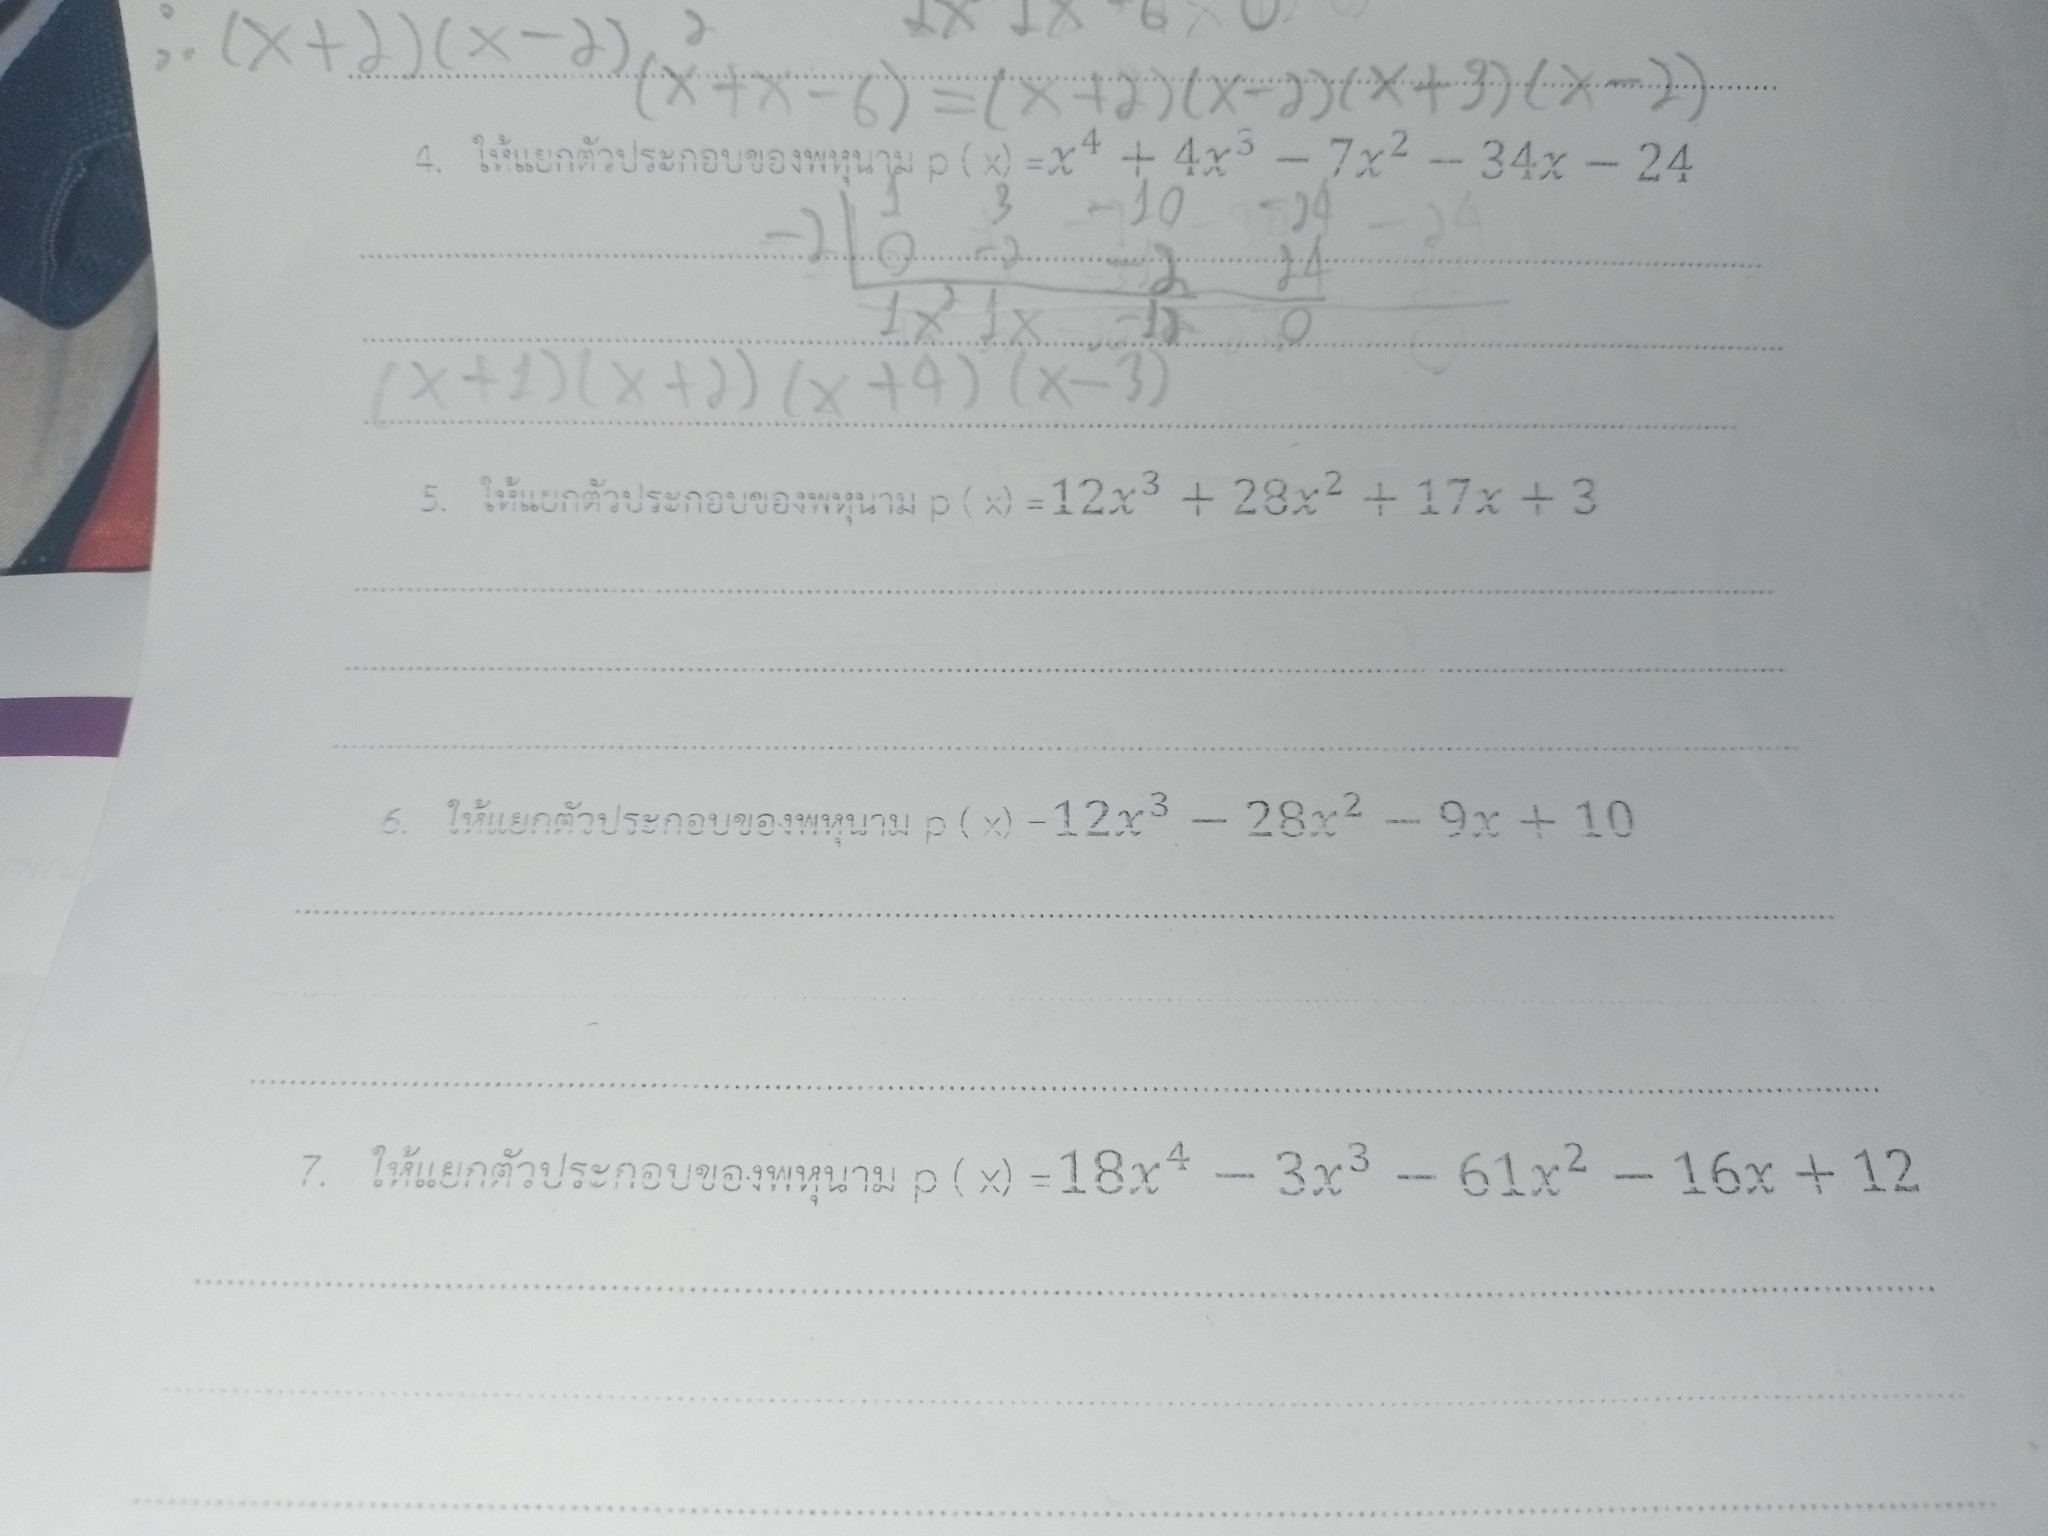 ∴ (x+2)(x-2)(x²+x-6) = (x+2)(x-2)(x+3)(x-2)
4. ให้แยกตัวประกอบของพหุนาม p ( x ) = x⁴ + 4x³ − 7x² − 34x − 24
1 3 -10 -24
-2 0 -2 -2 24
1x² 1x -12 0
(x+1)(x+2)(x+4)(x-3)
5. ให้แยกตัวประกอบของพหุนาม p ( x ) = 12x³ + 28x² + 17x + 3
6. ให้แยกตัวประกอบของพหุนาม p ( x ) = 12x³ − 28x² − 9x + 10
7. ให้แยกตัวประกอบของพหุนาม p ( x ) = 18x⁴ − 3x³ − 61x² − 16x + 12